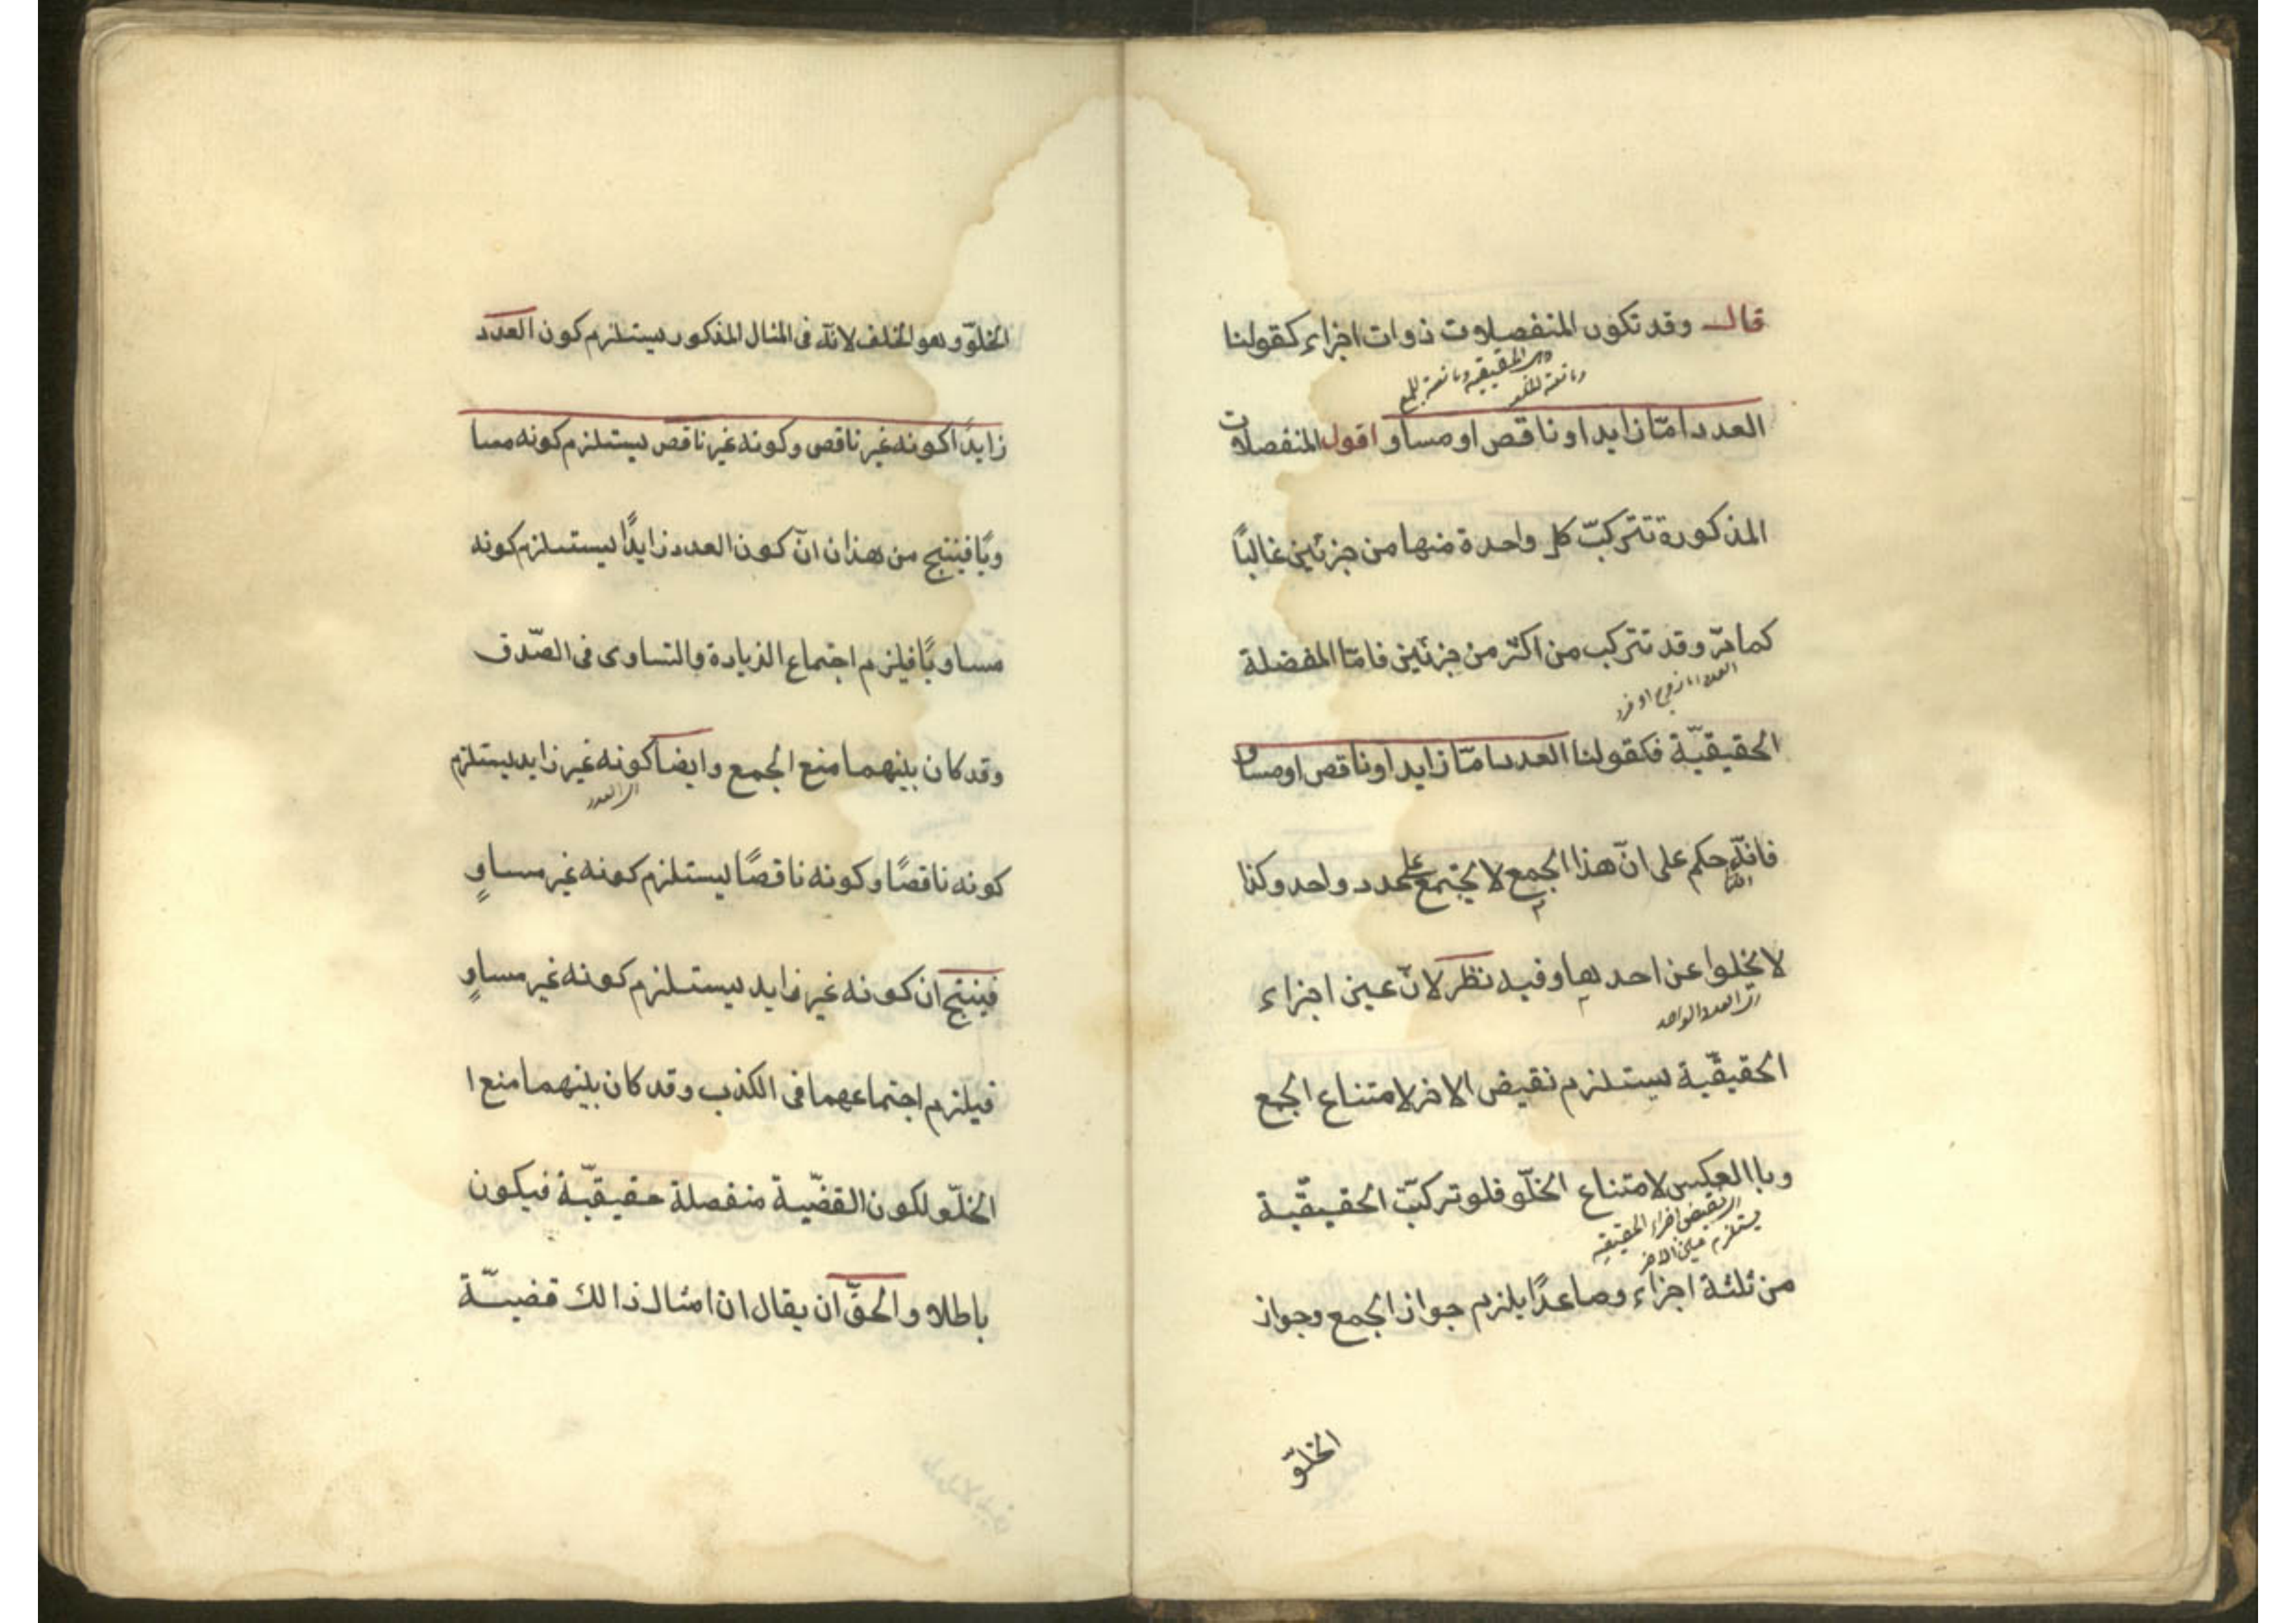 قال وقد تكون المنفصلات ذوات اجزاء كقولنا
وهى الحقيقية ومانعة الجمع
ومانعة الخلو
العدد امّا زايد او ناقص او مساو اقول المنفصلات
المذكورة تتركبّ كل واحدة منها من جزئين غالبًا
كما مرّ وقد تتركب من اكثر من جزئين فامّا المفضلة
العدد اما زوج او فرد
الحقيقيّة فكقولنا العدد امّا زايد او ناقص او مساو
فانّه حكم على انّ هذا الجمع لا يجتمع على عدد واحد وكذا
لا يخلوا عن احدها وفيه نظر لانّ عين اجزاء
اى العدد الواحد
الحقيقيّة يستلزم نقيض الاخر لامتناع الجمع
وباالعكس لامتناع الخلّو فلو تركبّت الحقيقيّة
اى نقيض اجزاء الحقيقيه
يستلزم عين الاخر
من ثلثة اجزاء وصاعدًا يلزم جواز الجمع وجواز
الخلوّ
الخلوّ وهو الخلف لانّه فى المثال المذكور يستلزم كون العدد
زايدًا كونه غير ناقص وكونه غير ناقص يستلزم كونه مسا
ويًا فينتج من هذان انّ كون العدد زايدًا يستلزم كونه
مساويًا فيلزم اجتماع الزيادة والتساوى فى الصّدق
وقد كان بينهما منع الجمع وايضا كونه غير زايد يستلزم
اى العدد
كونه ناقصًا وكونه ناقصًا يستلزم كونه غير مساوٍ
فينتج ان كونه غير زايد يستلزم كونه غير مساوٍ
فيلزم اجتماعهما فى الكذب وقد كان بينهما منع ا
الخلّو لكون القضيّة منفصلة حقيقيّة فيكون
باطلا والحقّ ان يقال ان امثال ذالك قضيّة